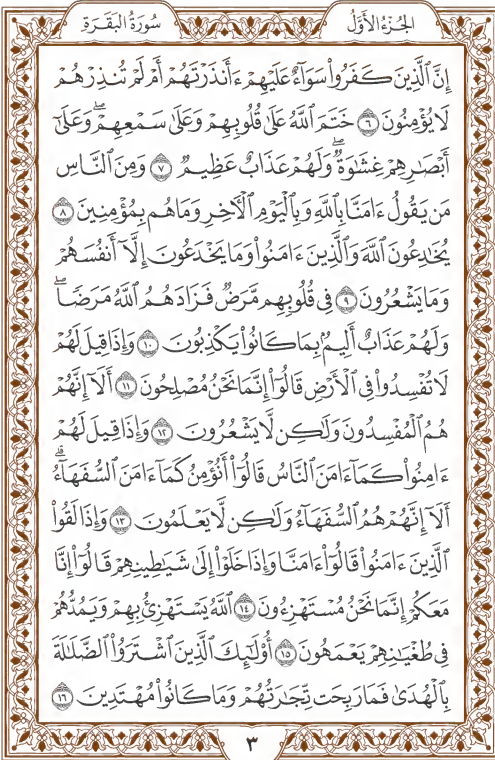 الجُزْءُ الأَوَّلُ
سُورَةُ البَقَرَةِ
إِنَّ ٱلَّذِينَ كَفَرُواْ سَوَآءٌ عَلَيْهِمْ ءَأَنذَرْتَهُمْ أَمْ لَمْ تُنذِرْهُمْ
لَا يُؤْمِنُونَ ٦ خَتَمَ ٱللَّهُ عَلَىٰ قُلُوبِهِمْ وَعَلَىٰ سَمْعِهِمْۖ وَعَلَىٰٓ
أَبْصَٰرِهِمْ غِشَٰوَةٌۖ وَلَهُمْ عَذَابٌ عَظِيمٌ ٧ وَمِنَ ٱلنَّاسِ
مَن يَقُولُ ءَامَنَّا بِٱللَّهِ وَبِٱلْيَوْمِ ٱلْءَاخِرِ وَمَا هُم بِمُؤْمِنِينَ ٨
يُخَٰدِعُونَ ٱللَّهَ وَٱلَّذِينَ ءَامَنُواْ وَمَا يَخْدَعُونَ إِلَّآ أَنفُسَهُمْ
وَمَا يَشْعُرُونَ ٩ فِى قُلُوبِهِم مَّرَضٌ فَزَادَهُمُ ٱللَّهُ مَرَضًاۖ
وَلَهُمْ عَذَابٌ أَلِيمٌۢ بِمَا كَانُواْ يَكْذِبُونَ ١٠ وَإِذَا قِيلَ لَهُمْ
لَا تُفْسِدُواْ فِى ٱلْأَرْضِ قَالُوٓاْ إِنَّمَا نَحْنُ مُصْلِحُونَ ١١ أَلَآ إِنَّهُمْ
هُمُ ٱلْمُفْسِدُونَ وَلَٰكِن لَّا يَشْعُرُونَ ١٢ وَإِذَا قِيلَ لَهُمْ
ءَامِنُواْ كَمَآ ءَامَنَ ٱلنَّاسُ قَالُوٓاْ أَنُؤْمِنُ كَمَآ ءَامَنَ ٱلسُّفَهَآءُۗ
أَلَآ إِنَّهُمْ هُمُ ٱلسُّفَهَآءُ وَلَٰكِن لَّا يَعْلَمُونَ ١٣ وَإِذَا لَقُواْ
ٱلَّذِينَ ءَامَنُواْ قَالُوٓاْ ءَامَنَّا وَإِذَا خَلَوْاْ إِلَىٰ شَيَٰطِينِهِمْ قَالُوٓاْ إِنَّا
مَعَكُمْ إِنَّمَا نَحْنُ مُسْتَهْزِءُونَ ١٤ ٱللَّهُ يَسْتَهْزِئُ بِهِمْ وَيَمُدُّهُمْ
فِى طُغْيَٰنِهِمْ يَعْمَهُونَ ١٥ أُوْلَٰٓئِكَ ٱلَّذِينَ ٱشْتَرَوُاْ ٱلضَّلَٰلَةَ
بِٱلْهُدَىٰ فَمَا رَبِحَت تِّجَٰرَتُهُمْ وَمَا كَانُواْ مُهْتَدِينَ ١٦
٣